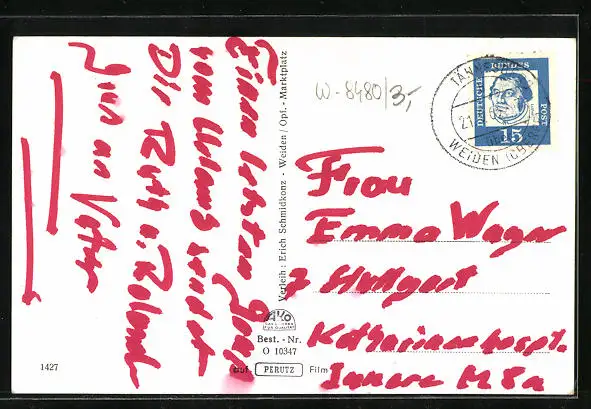 Einen letzten Gruß
vom Urlaub sendet
Dir Ruth u. Roland
Gruß an Vater
Verleih: Erich Schmidkonz - Weiden / Opf. - Marktplatz
W-8480/3,-
DEUTSCHE BUNDES POST
15
21.
WEIDEN
Frau
Emma Wager
7 Stuttgart
Katharinenhospt.
Innere M8a
Best. - Nr.
O 10347
auf PERUTZ Film
1427